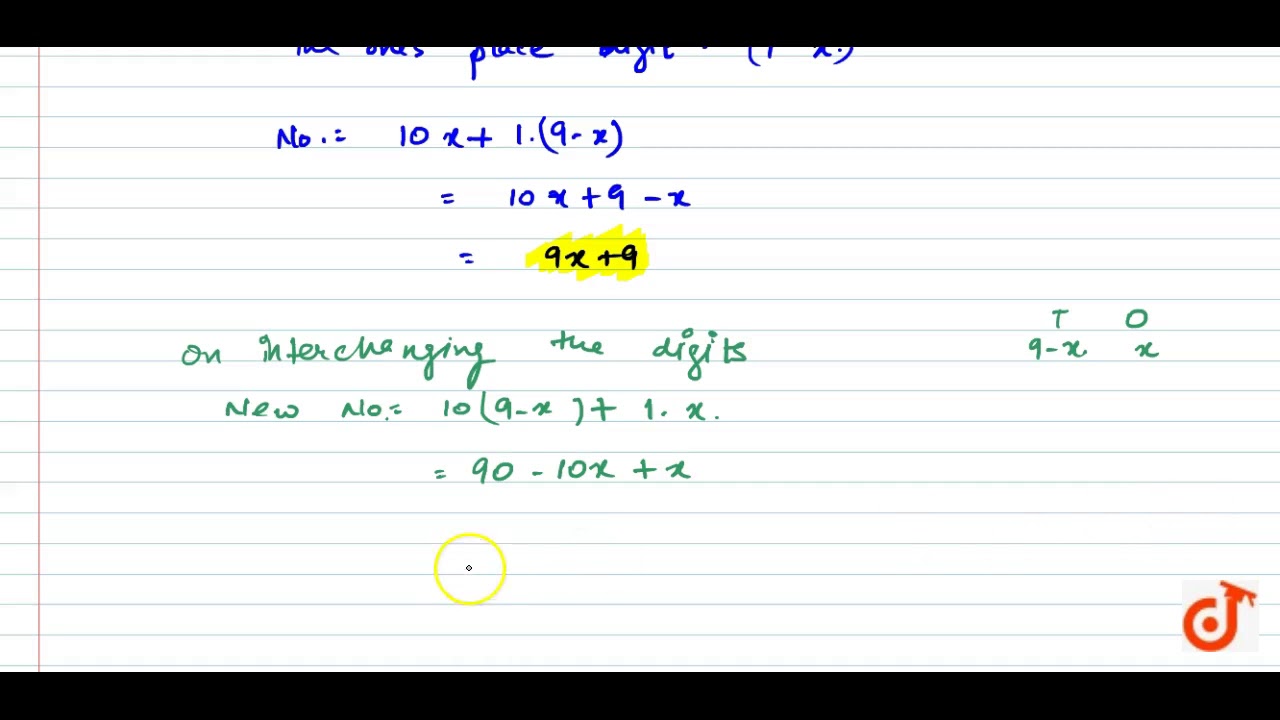 the ones place digit
No. = 10x + 1.(9-x)
= 10x + 9 - x
= 9x + 9
T O
9-x x
On interchanging the digits
New No. = 10(9-x) + 1. x.
= 90 - 10x + x